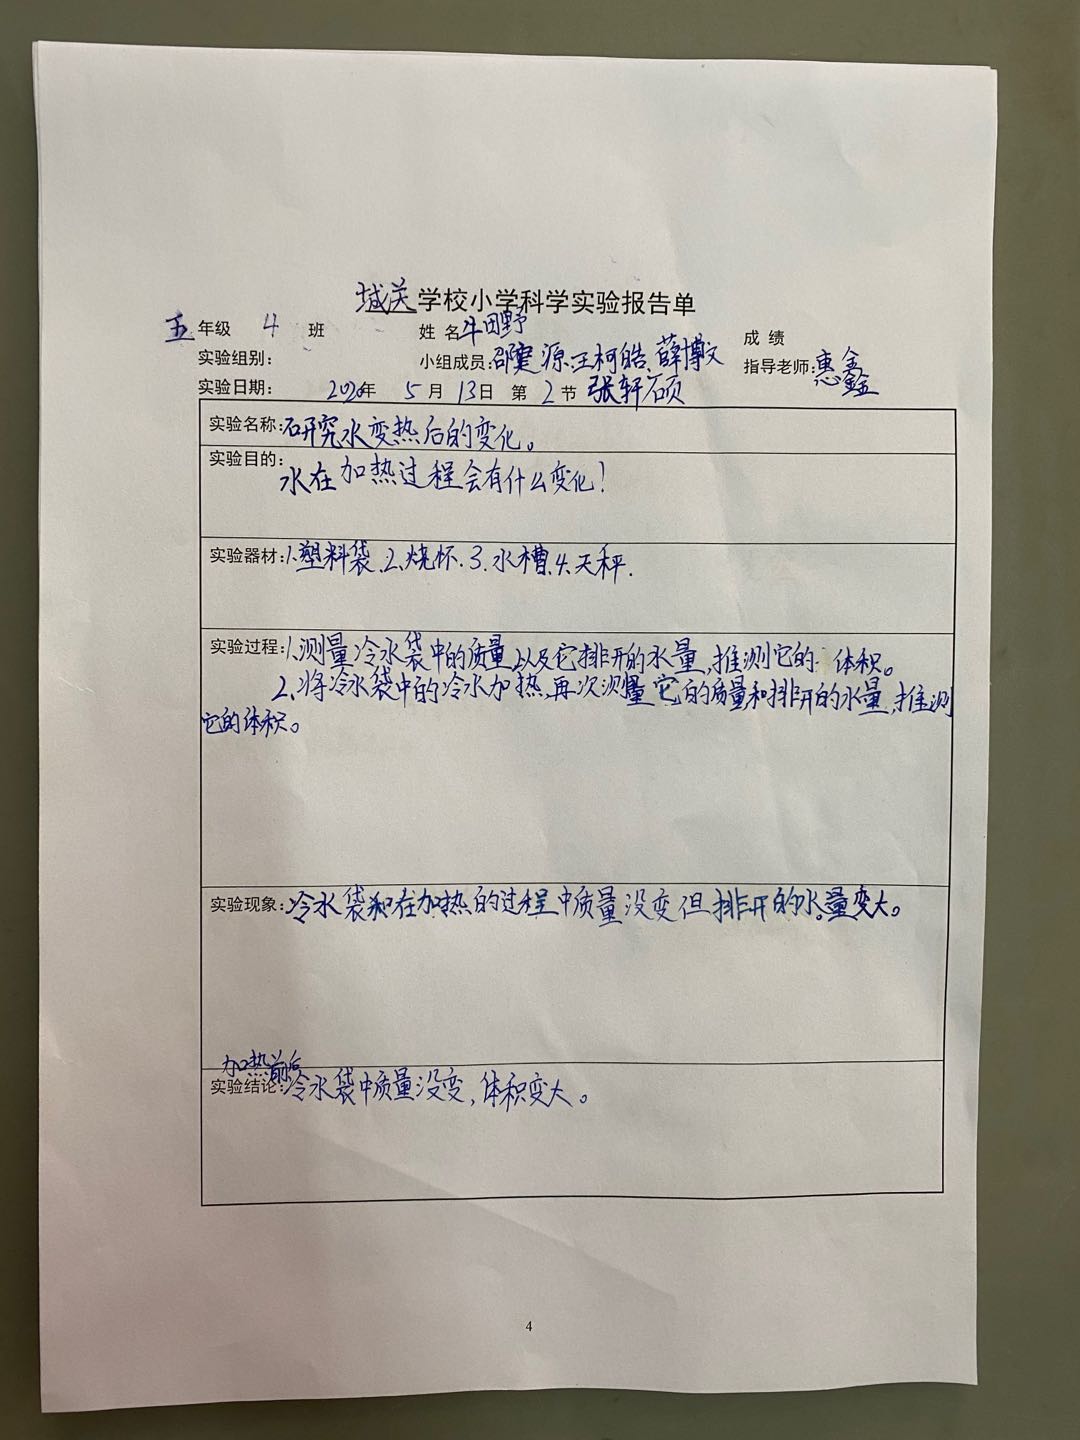 城关学校小学科学实验报告单
五年级 4 班 姓名牛田野 成绩
实验组别: 小组成员:邵寔源.王柯皓.薛博文 指导老师:惠鑫
实验日期: 2020年 5月 13日 第 2 节 张轩硕
实验名称:研究水变热后的变化。
实验目的:
水在加热过程会有什么变化!
实验器材:1.塑料袋.2.烧怀.3.水槽.4.天秤.
实验过程:1.测量冷水袋中的质量以及它排开的水量,推测它的 体积。
2.将冷水袋中的冷水加热,再次测量它的质量和排开的水量,推测
它的体积。
实验现象:冷水袋和在加热的过程中质量没变但排开的水。量变大。
加热前后
实验结论:冷水袋中质量没变,体积变大。
4